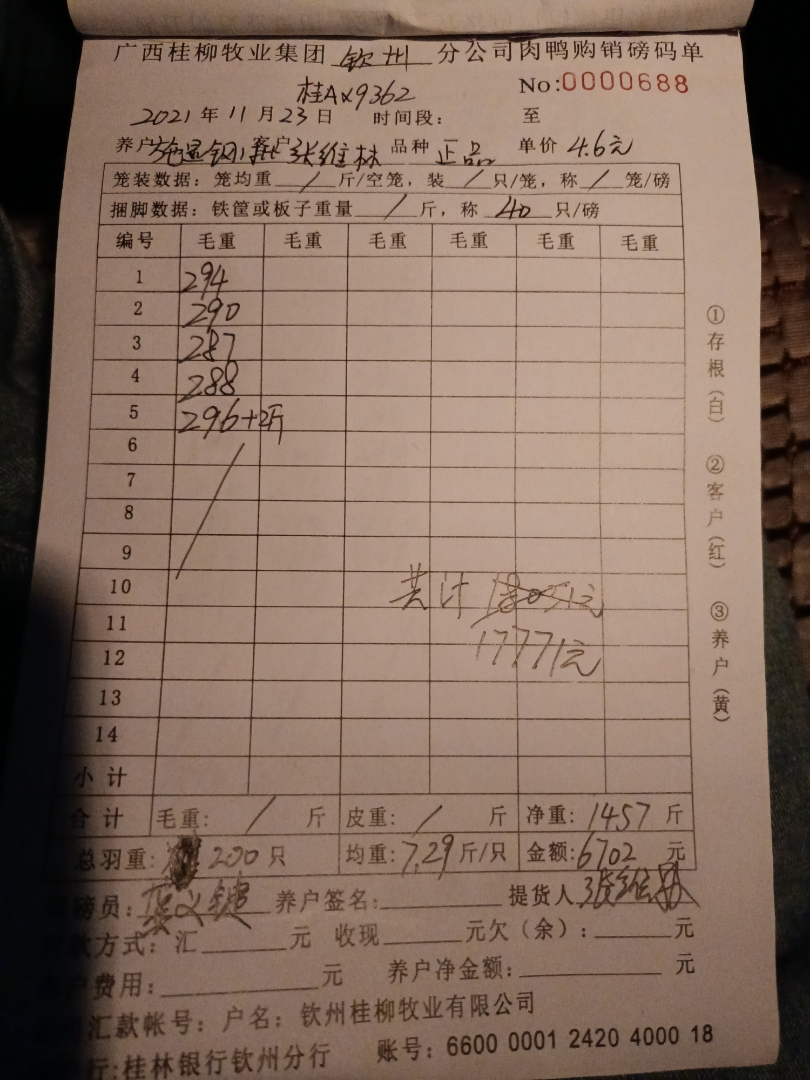 广西桂柳牧业集团 钦州 分公司肉鸭购销磅码单
桂A×9362 No:0000688
2021年11月23日 时间段: 至
养户 客户 张维林 品种 正品 单价 4.6元
笼装数据: 笼均重 / 斤/空笼, 装 / 只/笼, 称 / 笼/磅
捆脚数据: 铁筐或板子重量 / 斤, 称 40 只/磅
编号 毛重 毛重 毛重 毛重 毛重 毛重
1 294
2 290
3 287
4 288
5 296+2斤
6
7
8
9
10 共计 18051元
11
12 17771元
13
14
小计
合计 毛重: / 斤 皮重: / 斤 净重: 1457 斤
总羽重: 200 只 均重: 7.29 斤/只 金额: 6702 元
磅员: 养户签名: 提货人 张维林
款方式: 汇 元 收现 元欠(余): 元
户费用: 元 养户净金额: 元
汇款帐号: 户名: 钦州桂柳牧业有限公司
行: 桂林银行钦州分行 账号: 6600 0001 2420 4000 18
①存根(白) ②客户(红) ③养户(黄)